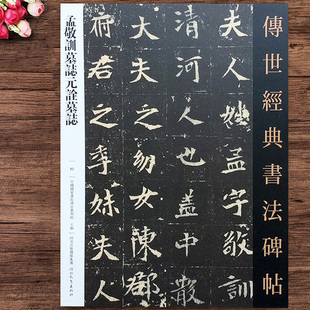 傳世經典書法碑帖
夫人姓孟字敬訓
清河人也蓋中散
大夫之幼女陳郡
府君之季妹夫人
孟敬訓墓誌元詮墓誌